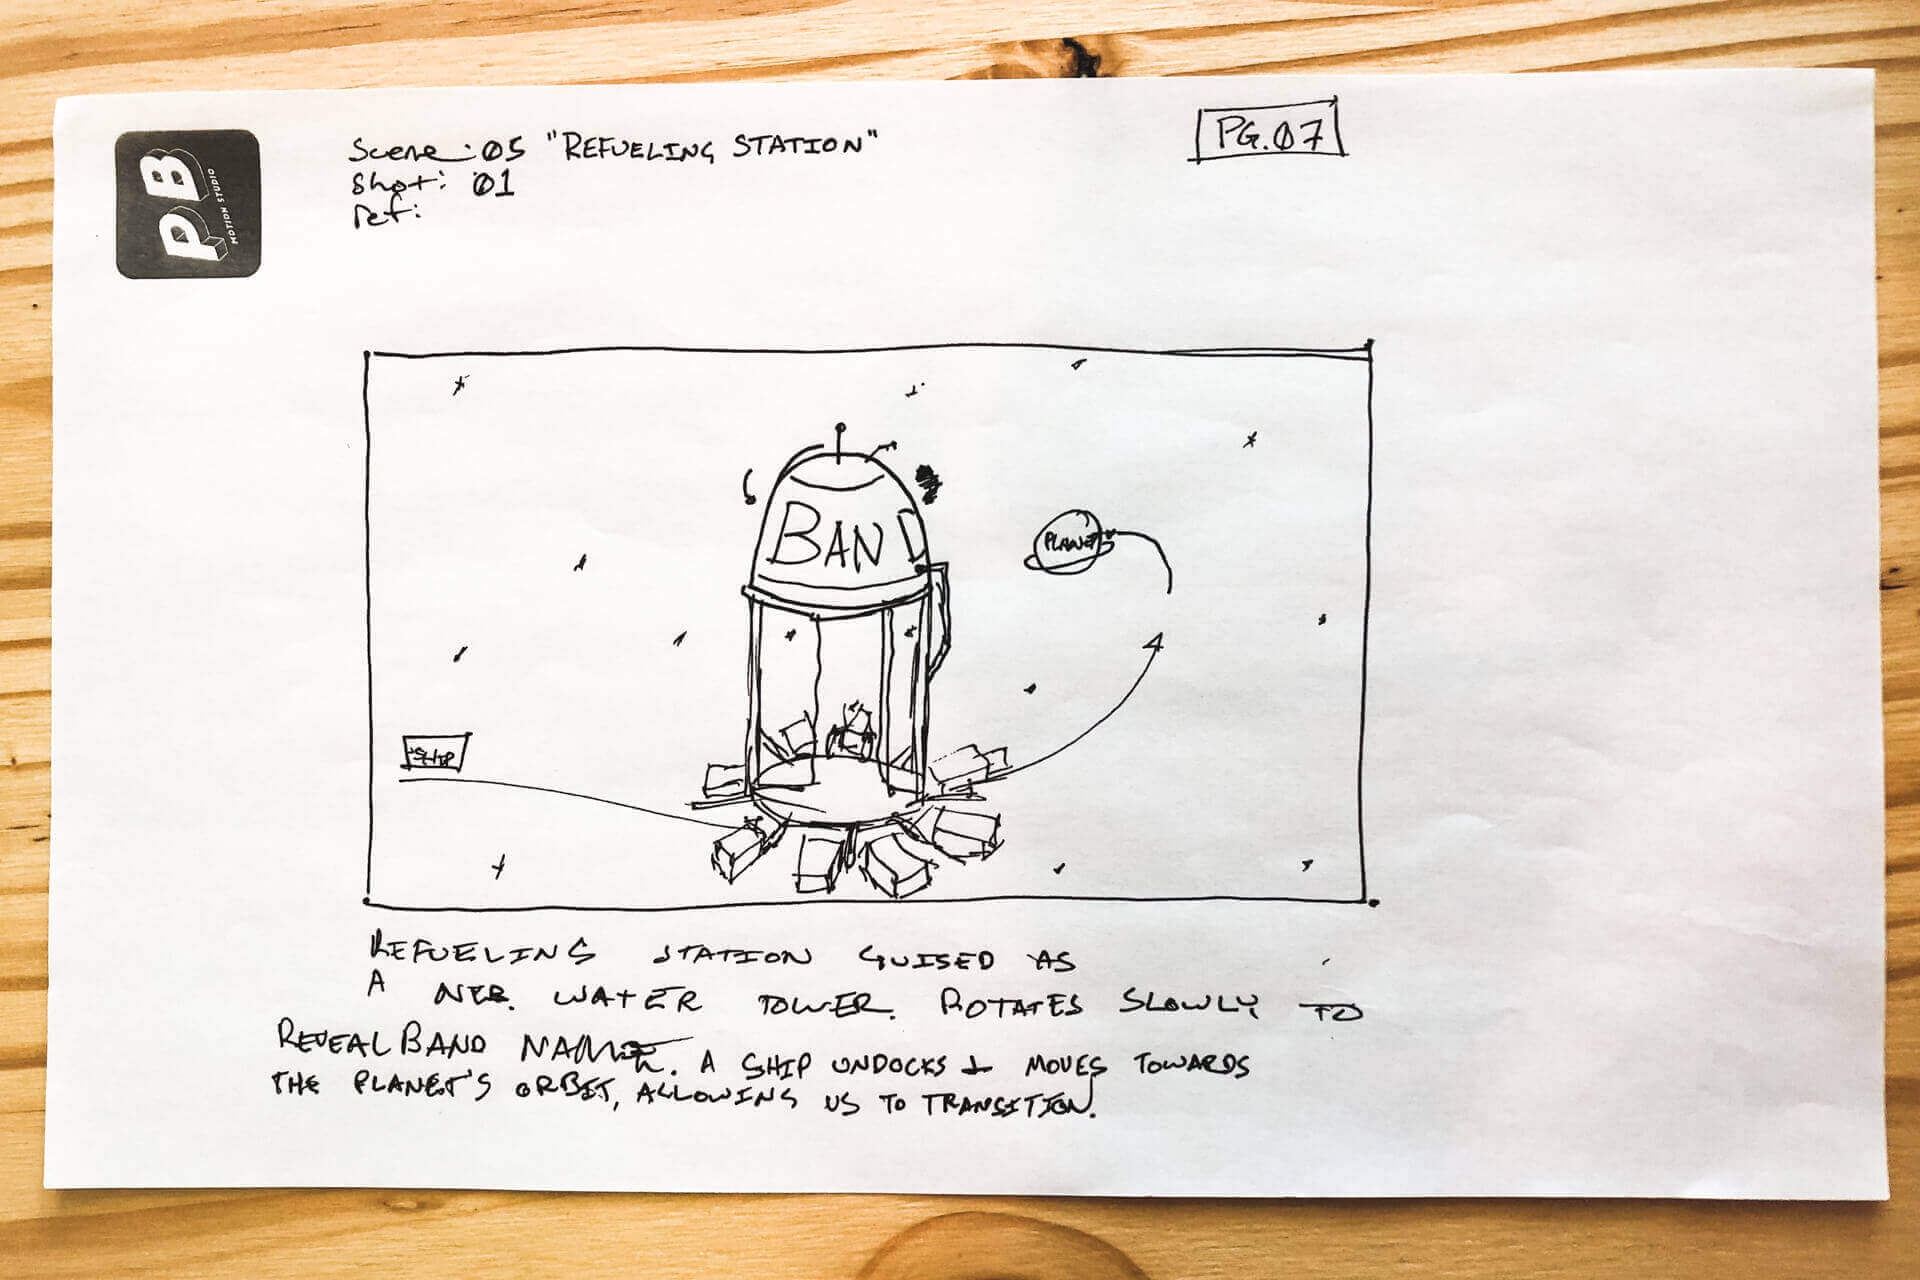 PB
MOTION STUDIO
Scene: 05 "REFUELING STATION"
Shot: 01
ref:
PG.07
BAND
PLANET
SHIP
REFUELING STATION GUISED AS
A WATER TOWER. ROTATES SLOWLY TO
REVEAL BAND NAME. A SHIP UNDOCKS & MOVES TOWARDS
THE PLANET'S ORBIT, ALLOWING US TO TRANSITION.